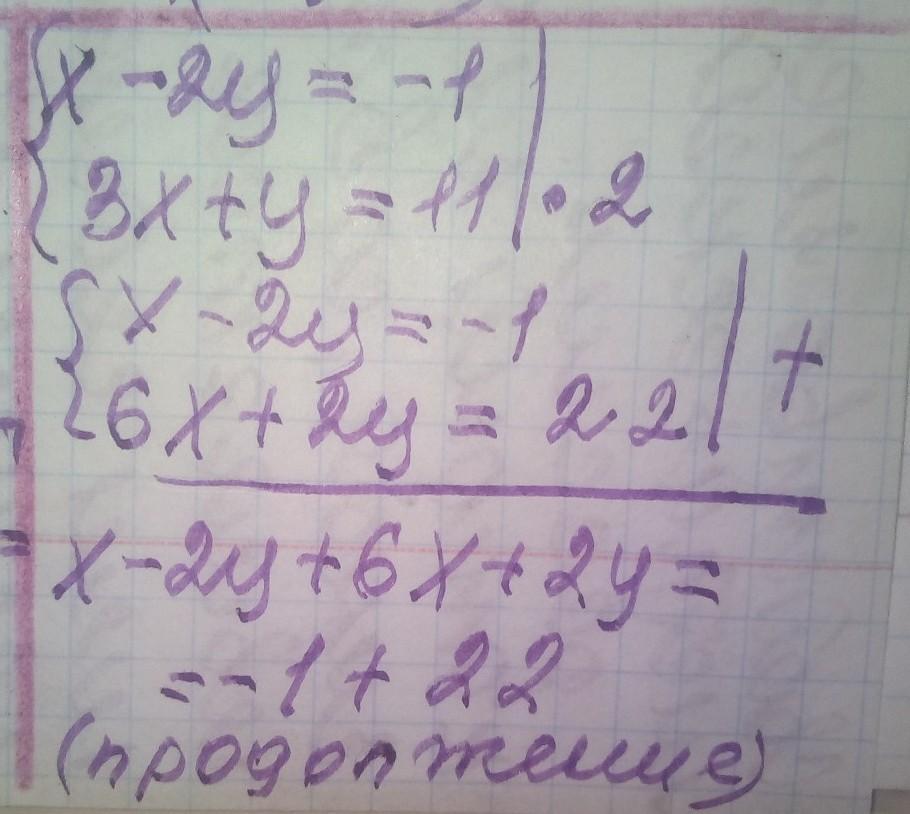 {x - 2y = -1
3x + y = 11 | · 2
{x - 2y = -1
6x + 2y = 22 | +
x - 2y + 6x + 2y =
= -1 + 22
(продолжение)